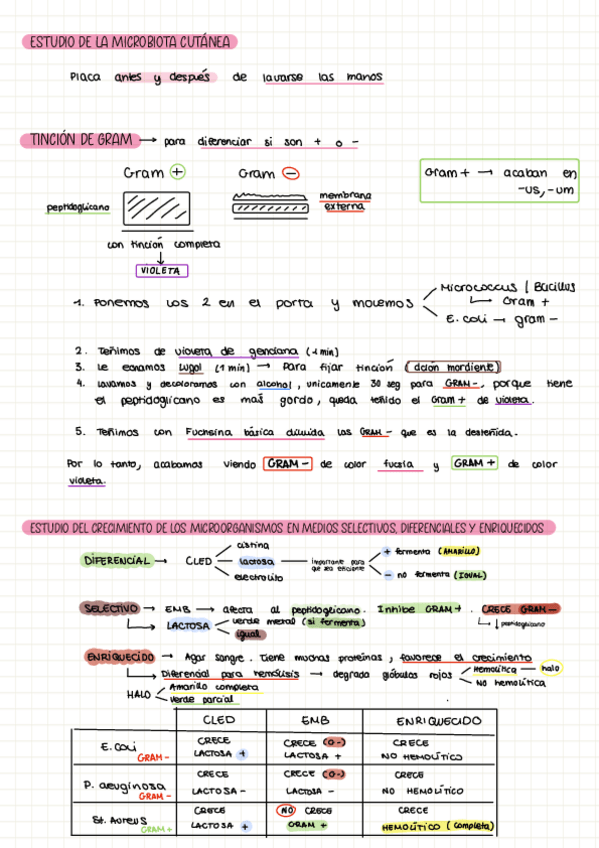 ESTUDIO DE LA MICROBIOTA CUTÁNEA
Placa antes y después de lavarse las manos
TINCIÓN DE GRAM → para diferenciar si son + o -
Gram +
Gram -
Gram + → acaban en
-us, -um
peptidoglicano
membrana
externa
con tinción completa
VIOLETA
1. Ponemos los 2 en el porta y molemos
Micrococcus / Bacillus
Gram +
E. coli → gram -
2. Teñimos de violeta de genciana (1 min)
3. Le echamos lugol (1 min) → Para fijar tinción (dción mordiente)
4. lavamos y decoloramos con alcohol, unicamente 30 seg para GRAM-, porque tiene
el peptidoglicano es mas gordo, queda teñido el Gram+ de violeta.
5. Teñimos con Fuchsina básica diluida las GRAM- que es la desteñida.
Por lo tanto, acabamos viendo GRAM- de color fucsia y GRAM+ de color
violeta.
ESTUDIO DEL CRECIMIENTO DE LOS MICROORGANISMOS EN MEDIOS SELECTIVOS, DIFERENCIALES Y ENRIQUECIDOS
DIFERENCIAL → CLED
cistina
lactosa
electrolito
importante para
que sea eficiente
+ fermenta (AMARILLO)
- no fermenta (IGUAL)
SELECTIVO → EMB → afecta al peptidoglicano. Inhibe GRAM+. CRECE GRAM-
↓ peptidoglicano
LACTOSA
verde metal (si fermenta)
igual
ENRIQUECIDO → Agar sangre. Tiene muchas proteinas, favorece el crecimiento
Diferencial para hemólisis → degrada glóbulos rojos
Hemolítica — halo
No hemolítica
HALO
Amarillo completa
verde parcial
CLED EMB ENRIQUECIDO
E. Coli GRAM-
CRECE CRECE (O-) CRECE
LACTOSA + LACTOSA + NO HEMOLÍTICO
P. aeuginosa GRAM-
CRECE CRECE (O-) CRECE
LACTOSA - LACTOSA - NO HEMOLÍTICO
St. Aureus GRAM+
CRECE NO CRECE CRECE
LACTOSA + GRAM + HEMOLÍTICO (completa)